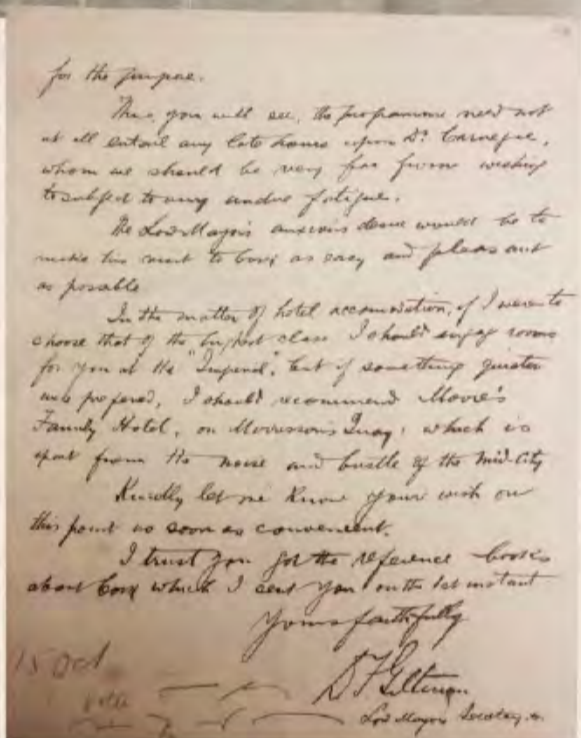 for the purpose.
Thus, you will see, the programme need not
at all entail any late hours upon Dr. Carnegie,
whom we should be very far from wishing
to subject to any undue fatigue.
The Lord Mayor's anxious desire would be to
make his visit to Cork as easy and pleasant
as possible
In the matter of hotel accomodation, if I were to
choose that of the highest class I should engage rooms
for you at the "Imperial", but if something quieter
was prefered, I should recommend Moore's
Family Hotel, on Morrisson's Quay, which is
apart from the noise and bustle of the mid-city
Kindly let me know your wish on
this point as soon as convenient.
I trust you got the reference books
about Cork which I sent you on the 1st instant
Yours faithfully
D F Giltinan
Lord Mayor's Secretary
15 Oct